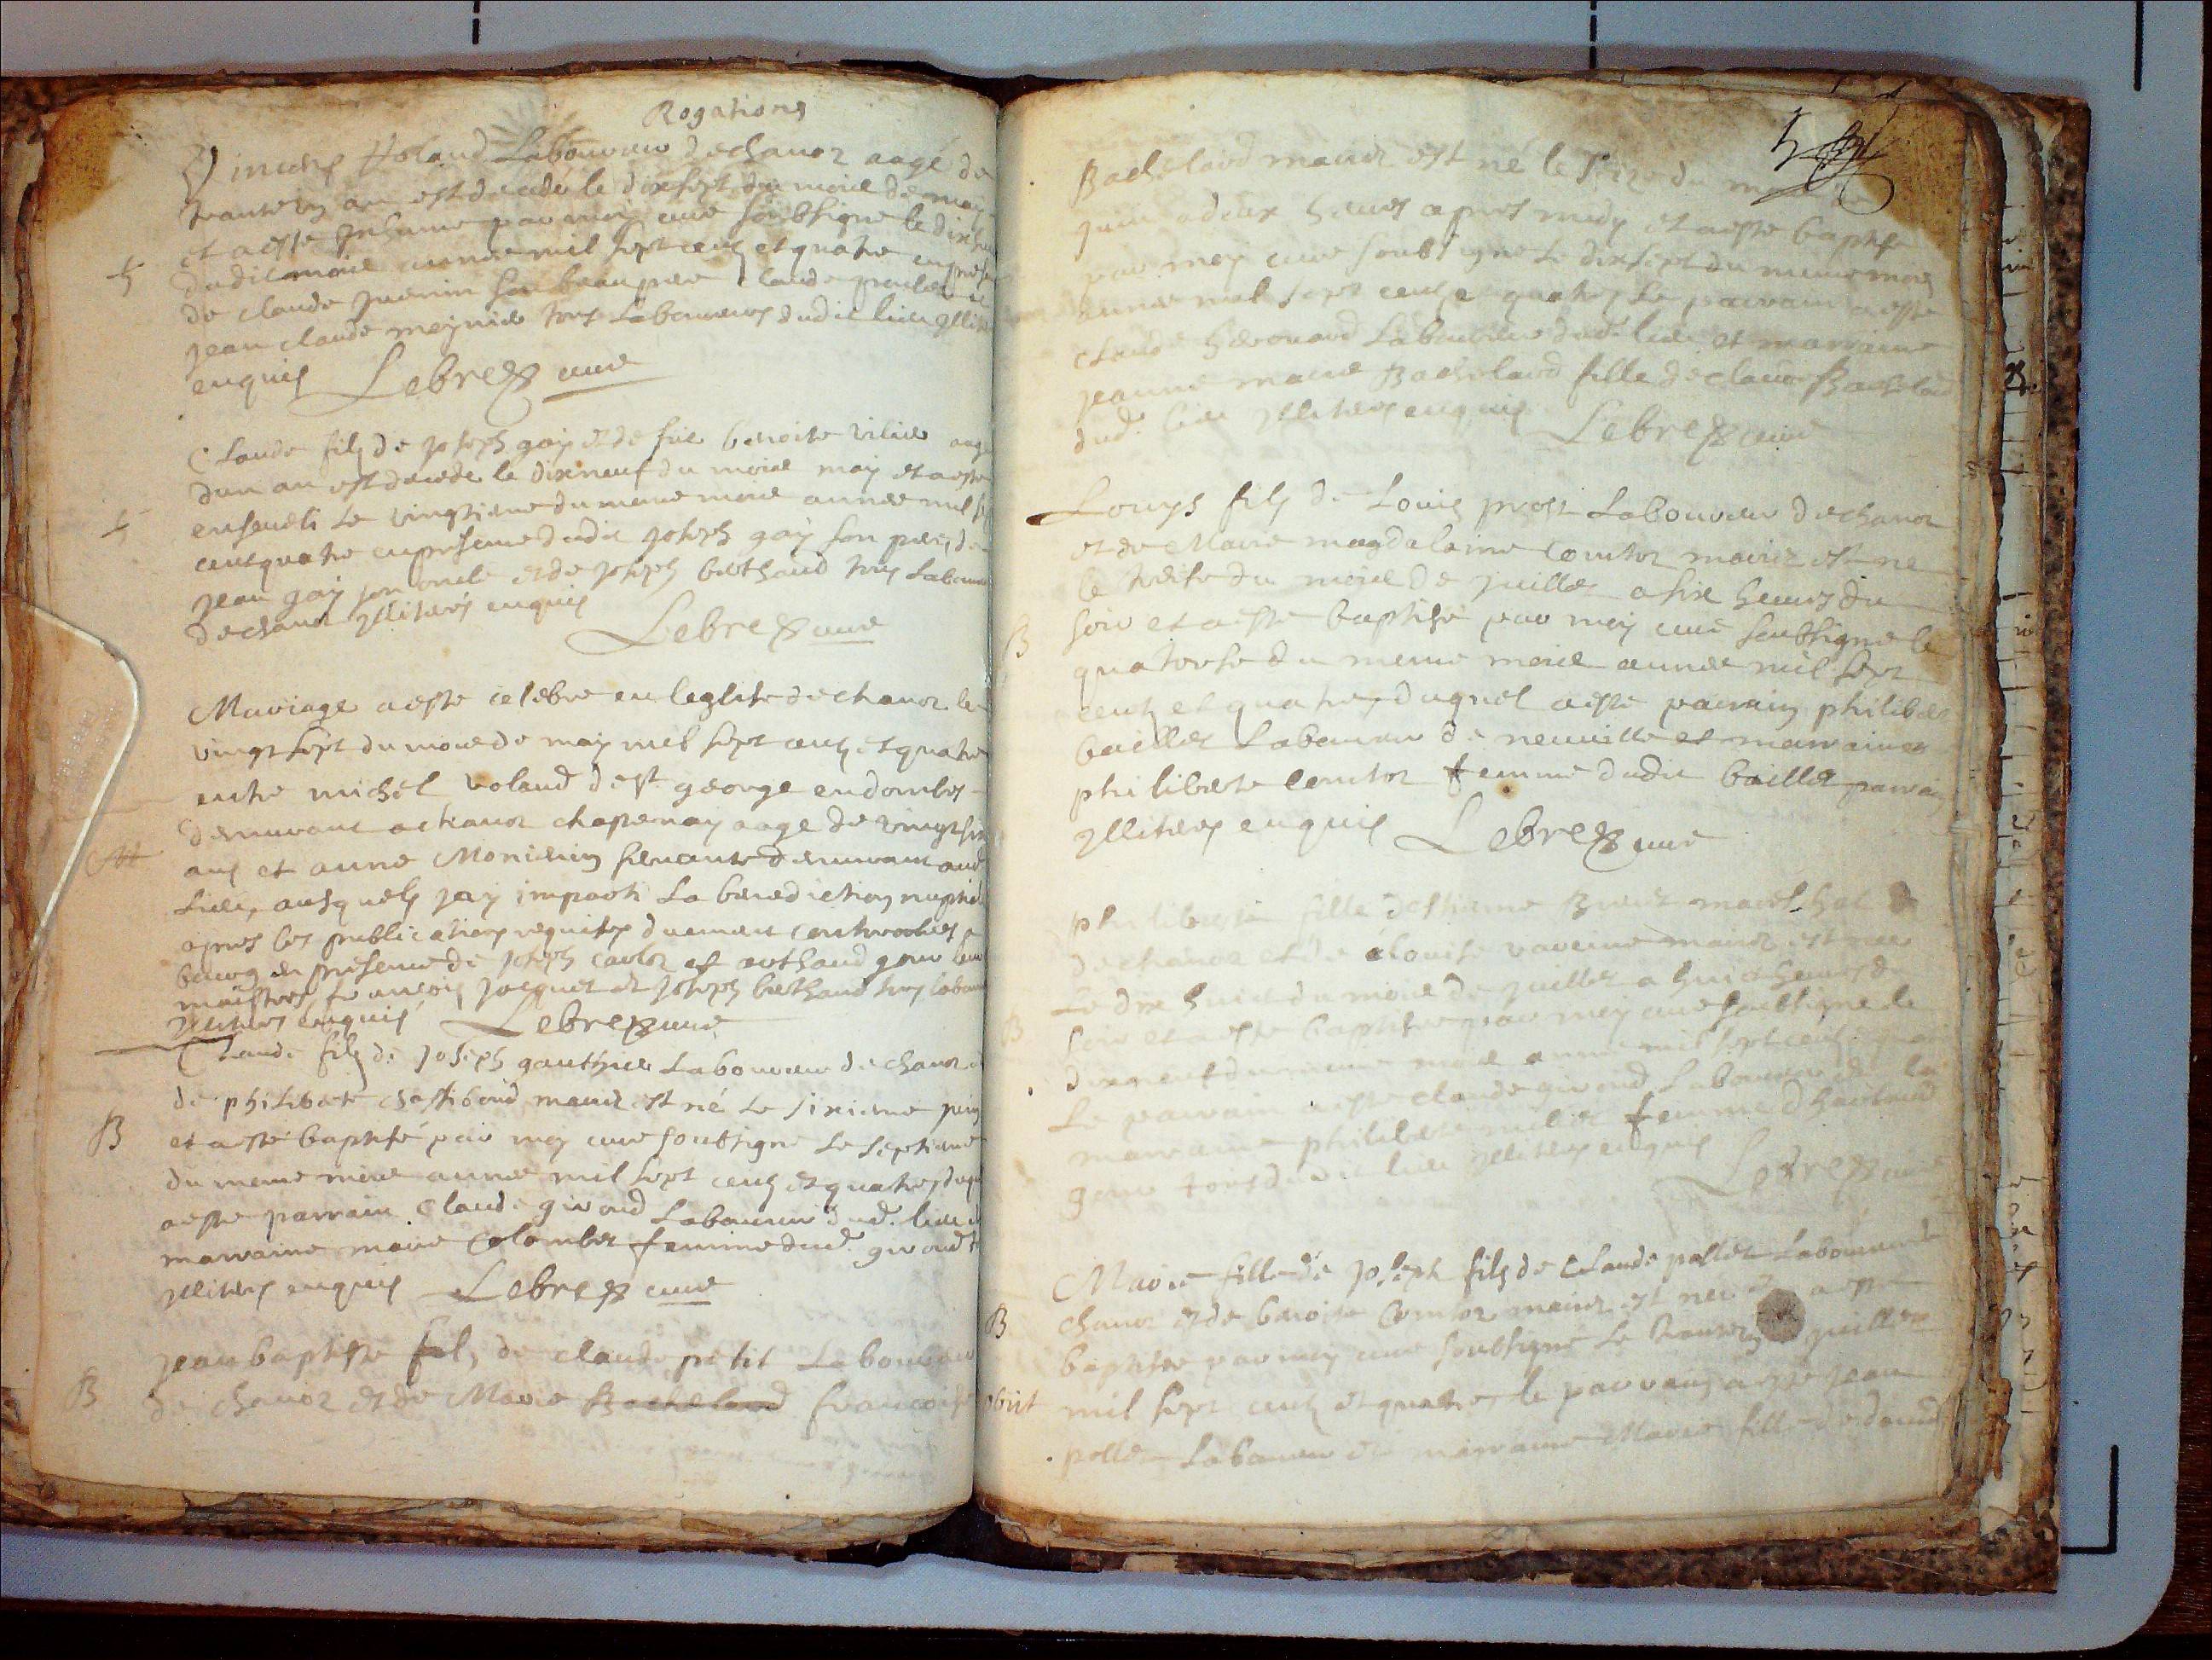 Rogations
Vincent Voland Laboureur de chanoz aagé de
trante un an est decedé le dixsept du mois de may
et a esté inhumé par moy curé soubsigné le dixhui
dudit mois année mil sept cent et quatre en presen
de claude Juenin son beaupere claude
Jean claude moynié tous Laboureurs dudit lieu Jllite
enquis Lebre curé
Claude fils de Joseph gay et de fue benoite aag
dun an est decede le dixneuf du mois may et a esté
enseveli le vingtieme du meme mois année mil s
cent quatre en presence dudit Joseph gay son pere, de
Jean gay son oncle et de Joseph berthaud tous Labour
de chanoz Jlliterés enquis
Lebre curé
Mariage a esté celebré en leglise de chanoz le
vingt sept du mois de may mil sept cent et quatre
entre michel voland de st george en dombes
demeurant a chanoz chatenay aagé de vingt six
M ans et anne Monierin servante demeurant aud
Lieu, ausquels jay imparti La benediction nuptial
apres les publications requises duement controolees a
bourg en presence de Joseph carloz et arthaud gour leur
maistres, francois Jocquet et Joseph berthaud tous labour
Jlliterés enquis Lebre curé
Claude fils de Joseph gauthier Laboureur de chanoz e
de philiberte chastiboud mariez est né le sixieme juin
B et a esté baptisé par moy curé soubsigné Le septieme
du meme mois année mil sept cent et quatre, duq
a esté parrain Claude giroud Laboureur dud. lieu e
marraine marie Colombet femme dud. giroud
Jlliterés enquis Lebre curé
Jean baptiste fils de claude petit Laboureur
B de chanoz et de Marie Bachelard francoise
Bachelard mariez est né le seize du mois de
juin a deux heures apres midy et a esté baptisé
par moy curé soubsigné le dixsept du meme mois
année mil sept cent et quatre, le parrain a esté
claude Laboureur dud. lieu et marraine
jeanne marie Bachelard fille de claude Bachelard
dud. lieu Jlliterés enquis Lebre curé
Louys fils de Louis prost Laboureur de chanoz
et de Marie magdelaine Comtoz mariez est né
le treise du mois de juillet a six heures du
B soir et a esté baptisé par moy curé soubsigné le
quatorse du meme mois année mil sept
cent et quatre, duquel a esté parrain philibert
baillet Laboureur de neuville et marraine
philiberte comtoz femme dudit baillet parrain
Jlliterés enquis Lebre curé
philiberte fille destienne mareschal
de chanoz et de elouise mariez est née
Le dix huit du mois de juillet a huit heures du
B soir et a esté baptisée par moy curé soubsigné le
dixneuf du meme mois année mil sept cent quatre
Le parrain a esté claude giroud Laboureur et la
marraine philiberte femme d
gour tous dudit lieu Jlliterés enquis Lebre curé
Marie fille de Joseph fils de Claude pollet Laboureur de
B chanoz et de benoite Comtoz mariez est née et a esté
baptisée par moy curé soubsigné Le trante un juillet
obiit mil sept cent et quatre, le parrain a esté Jean
pollet Laboureur et marraine Marie fille de